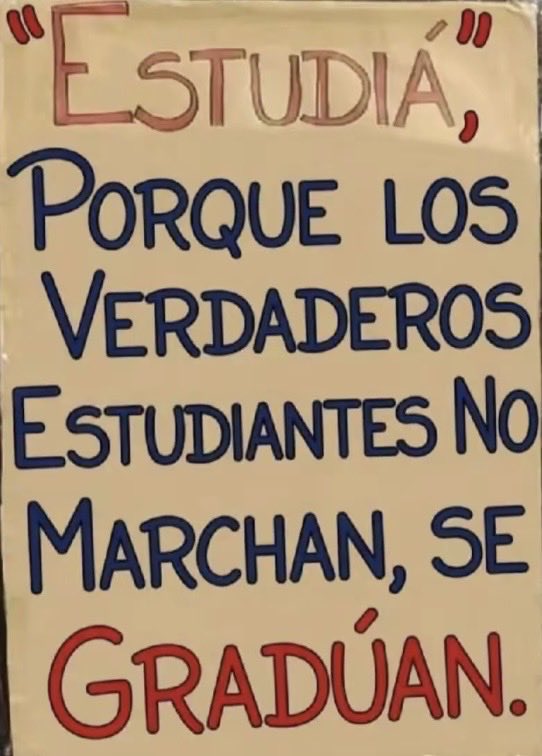 "ESTUDIÁ",
PORQUE LOS
VERDADEROS
ESTUDIANTES NO
MARCHAN, SE
GRADÚAN.